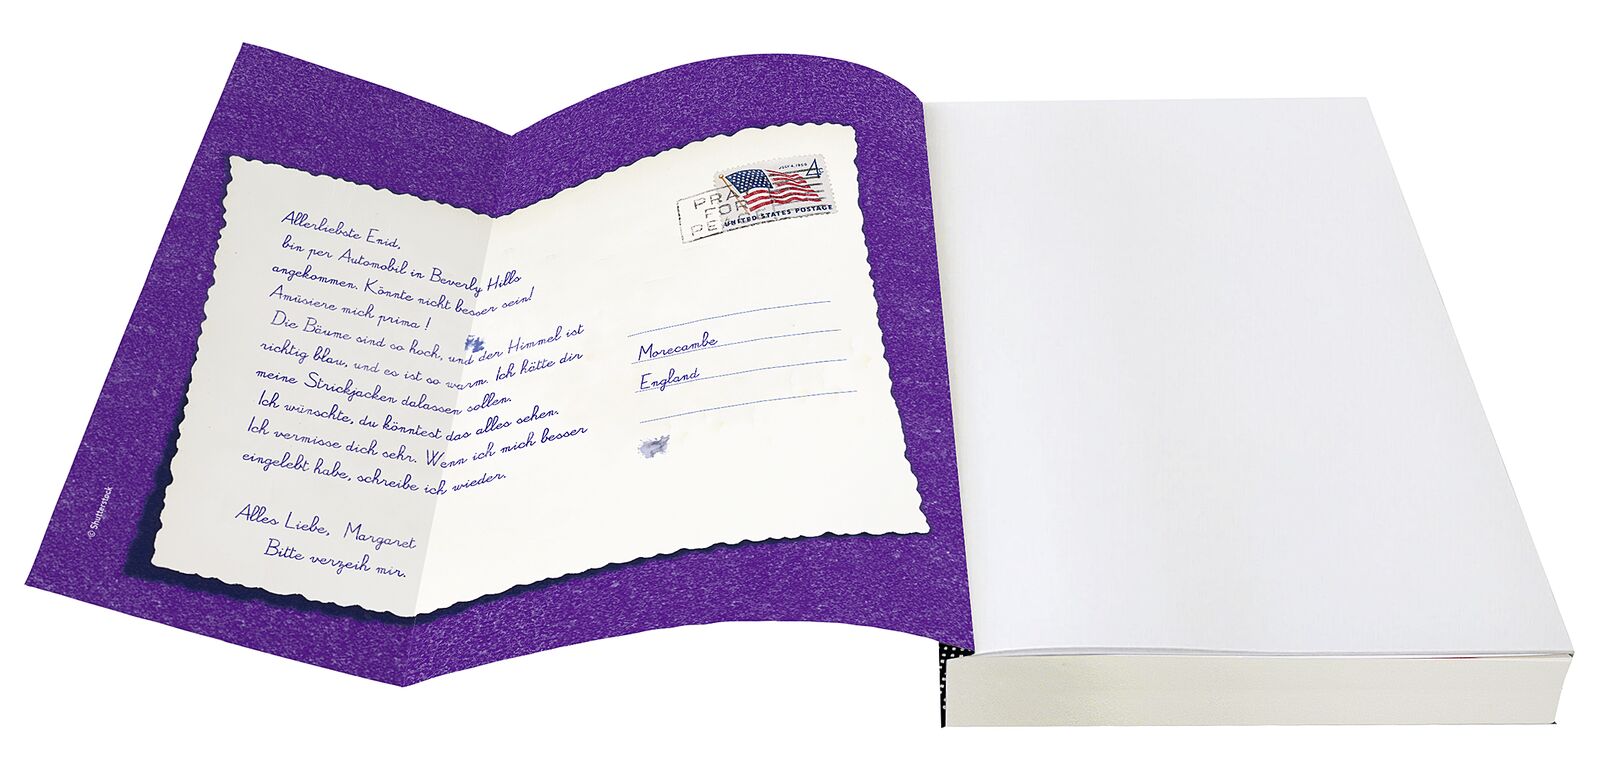 Allerliebste Enid,
bin per Automobil in Beverly Hills
angekommen. Könnte nicht besser sein!
Amüsiere mich prima!
Die Bäume sind so hoch, und der Himmel ist
richtig blau, und es ist so warm. Ich hätte dir
meine Strickjacken dalassen sollen.
Ich wünschte, du könntest das alles sehen.
Ich vermisse dich sehr. Wenn ich mich besser
eingelebt habe, schreibe ich wieder.
Alles Liebe, Margaret
Bitte verzeih mir.
JULY 4, 1960
4c
UNITED STATES POSTAGE
PRA
FOR
PEA
Morecambe
England
© Shutterstock